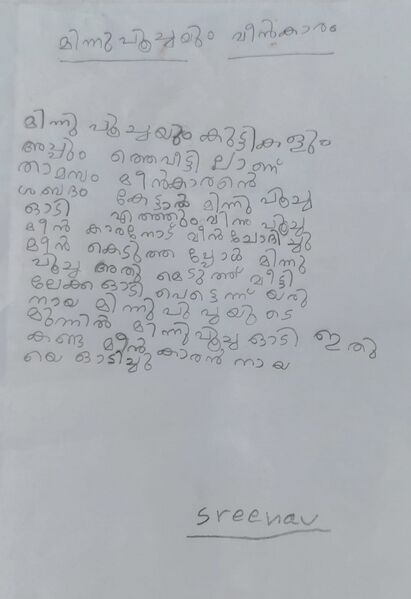 മിന്നു പൂച്ചയും മീൻകാരും
മിന്നു പൂച്ചയും കുട്ടികളും
അച്ചും ത്തെവീട്ടി ലാണ്
താമസം മീൻകാരൻെ
ശബദം കേട്ടാൽ മിന്നു പൂച്ച
ഓട്ടി എത്തും മിന്നു പൂച്ച
മീൻ കാരനോട് മീൻ ചോദിച്ചു
മീൻ കെടുത്ത പ്പോൾ മിന്നു
പൂച്ച അതു മെടുത്ത് വീട്ടി
ലേക്ക ഓടി പെട്ടെന്ന് യരു
നായ മിന്നു പൂച്ചയു ടെ
മുന്നിൽ മിന്നുപൂച്ച ഓടി ഇതു
കണ്ട മീൻ കാരൻ നായ
യെ ഓടിച്ചു
sreenav